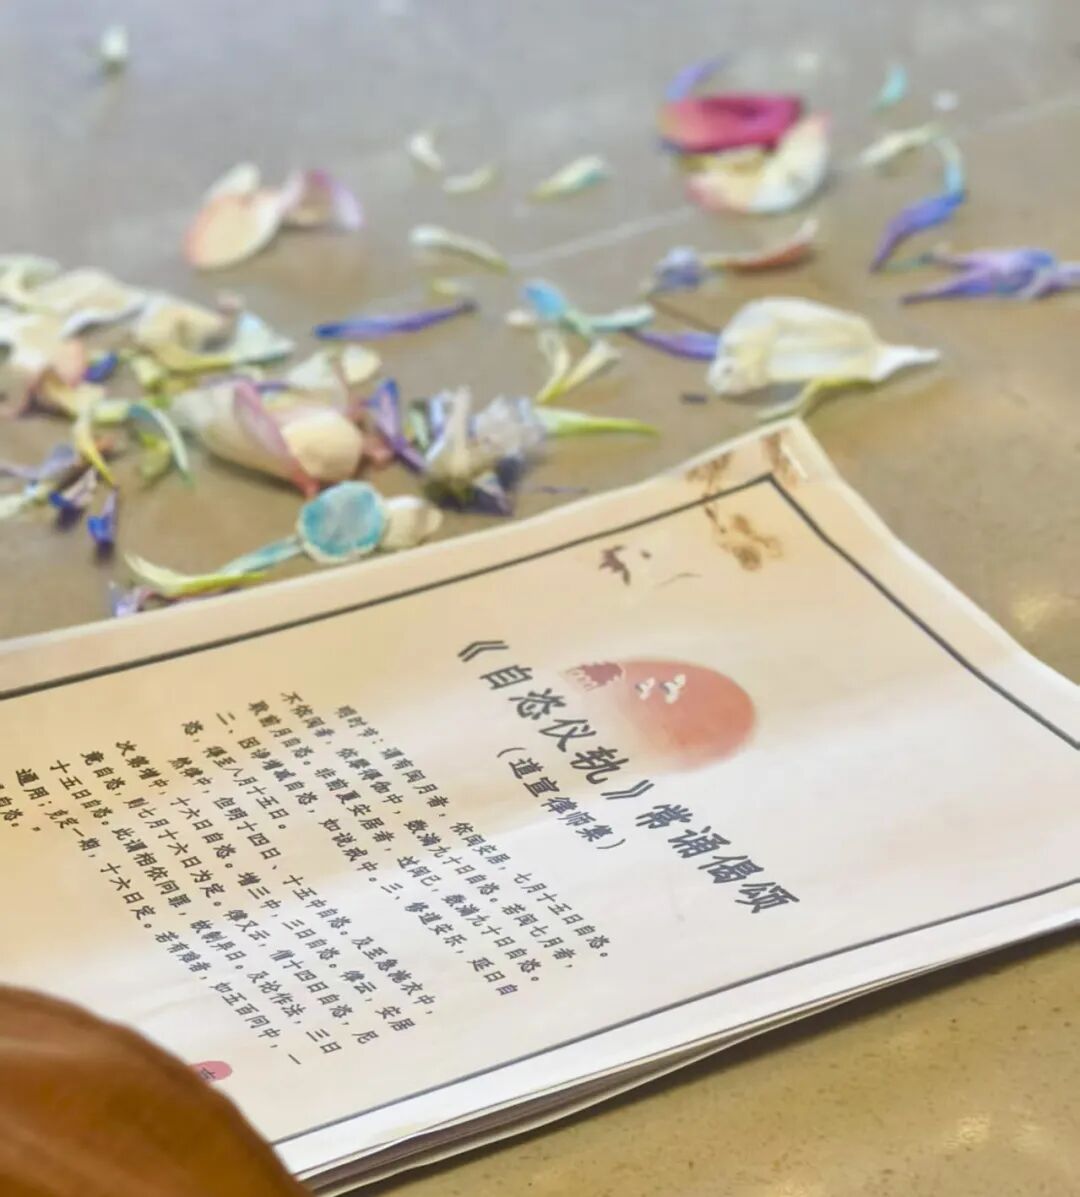 《自恣仪轨》常诵偈颂
（道宣律师集）
明时节；谓有闰月者，依闰安居，七月十五日自恣。
不依闰者，依摩得伽中，数满九十日自恣。若闰七月者，
取前月自恣。非前夏安居者，过闰已，数满九十日自恣。
二、因诤增减自恣，如说戒中。三、修道安乐，延日自
恣，得至八月十五日。
然律中，但明十四日、十五中自恣。及至急施衣中，
次第增中，十六日自恣。增三中，三日自恣。律云，安居
竟自恣，则七月十六日为定。律又云，僧十四日自恣，尼
十五日自恣。此谓相依问罪，故制异日。及论作法，三日
通用；克定一期，十六日定。若有难者，如五百问中，一
自恣。”